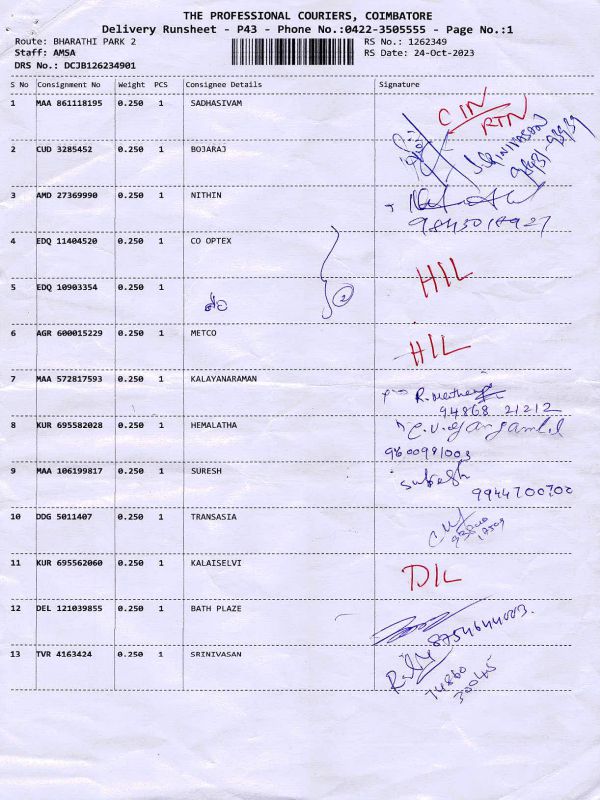 THE PROFESSIONAL COURIERS, COIMBATORE
Delivery Runsheet - P43 - Phone No.:0422-3505555 - Page No.:1
Route: BHARATHI PARK 2 RS No.: 1262349
Staff: AMSA RS Date: 24-Oct-2023
DRS No.: DCJB126234901
S No Consignment No Weight PCS Consignee Details Signature
1 MAA 861118195 0.250 1 SADHASIVAM
CIN
RTN
2 CUD 3285452 0.250 1 BOJARAJ
3 AMD 27369990 0.250 1 NITHIN
4 EDQ 11404520 0.250 1 CO OPTEX
HIL
5 EDQ 10903354 0.250 1 do 2
6 AGR 600015229 0.250 1 METCO HIL
7 MAA 572817593 0.250 1 KALAYANARAMAN
94868 21212
8 KUR 695582028 0.250 1 HEMALATHA
9600991003
9 MAA 106199817 0.250 1 SURESH suresh
9944700700
10 DDG 5011407 0.250 1 TRANSASIA
11 KUR 695562060 0.250 1 KALAISELVI DIL
12 DEL 121039855 0.250 1 BATH PLAZE
8754644003.
13 TVR 4163424 0.250 1 SRINIVASAN
74860
30045